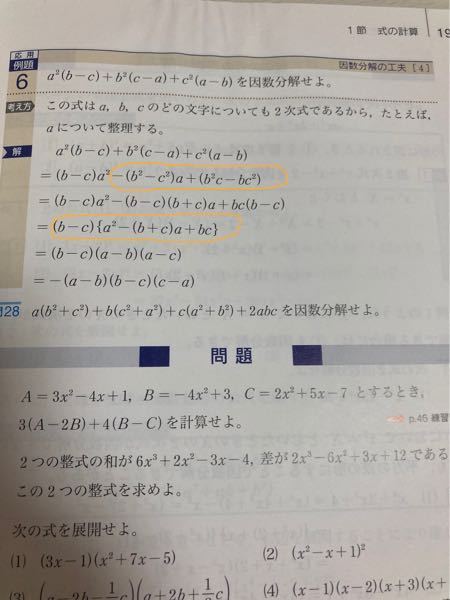 1節 式の計算 19
応用
例題
6
a²(b−c)+b²(c−a)+c²(a−b) を因数分解せよ。
因数分解の工夫 [4]
考え方
この式は a, b, c のどの文字についても2次式であるから,たとえば,
a について整理する。
解
a²(b−c)+b²(c−a)+c²(a−b)
=(b−c)a²−(b²−c²)a+(b²c−bc²)
=(b−c)a²−(b−c)(b+c)a+bc(b−c)
=(b−c){a²−(b+c)a+bc}
=(b−c)(a−b)(a−c)
=−(a−b)(b−c)(c−a)
28 a(b²+c²)+b(c²+a²)+c(a²+b²)+2abc を因数分解せよ。
問題
A=3x²−4x+1, B=−4x²+3, C=2x²+5x−7 とするとき,
3(A−2B)+4(B−C) を計算せよ。
p.45 練習
2つの整式の和が 6x³+2x²−3x−4, 差が 2x³−6x²+3x+12 である
この2つの整式を求めよ。
次の式を展開せよ。
(1) (3x−1)(x²+7x−5) (2) (x²−x+1)²
(3) (a−2b−1/2c)(a+2b+ (4) (x−1)(x−2)(x+3)(x+